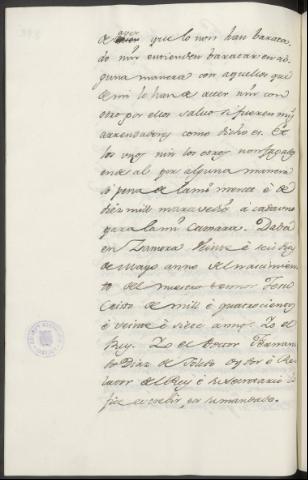 aver
de que lo non han baraca
do nin entienden baracar en al
guna manera con aquellos que
de mi lo han de aver nin con
otro por ellos salvo si fueren mis
arrendadores como dicho es. E
los unos nin los otros non fagades
ende al por alguna manera
so pena de la mi merced è de
diez mill maravedis à cada uno
para la mi Camara. Dada
en Zamora Veinte è seis dias
de Mayo anno del nacimien
to del nuestro Sennor Jesu
Cristo de mill è quatrocientos
è veinte è siete annos. Yo el
Rey. Yo el Doctor Fernan
do Diaz de Toledo Oydor è Re
lator del Rey è su Secretario la
fice escrebir por su mandado.